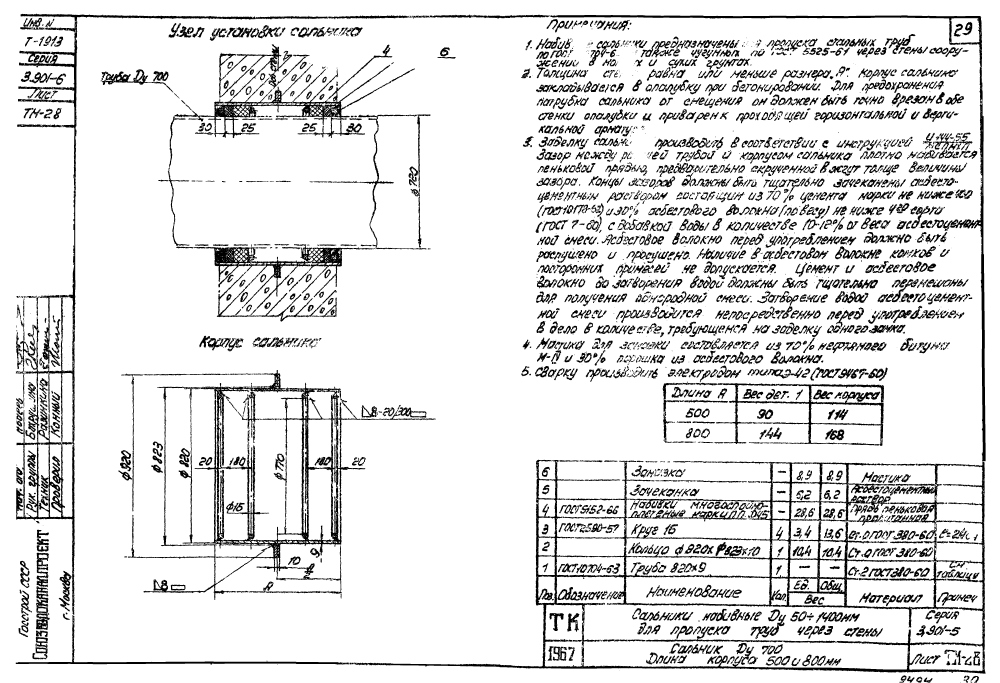 29
Инв. N
Т-1913
Серия
3.901-6
Лист
ТМ-28
Узел установки сальника
4
6
Труба Dу 700
30
25
25
30
ф720
Корпус сальника
ф920
ф823
ф820
20
180
ф770
180
20
ф16
10
9
А
Примечания:
1. Набив сальники предназначены пропуска стальных труб
по гост также чугунных по гост 5525-61 через стены соору-
жений в и сухих грунтах.
2. Толщина стен равна или меньше размера "А". Корпус сальника
закладывается в опалубку при бетонировании. Для предохранения
патрубка сальника от смещения он должен быть точно врезан в обе
стенки опалубки и приварен к проходящей горизонтальной и верти-
кальной арматуре
3. Заделку сальн производить в соответствии с инструкцией
Зазор между ра чей трубой и корпусом сальника плотно набивается
пеньковой прядью, предварительно скрученной в жгут толще величины
зазора. Концы зазоров должны быть тщательно зачеканены асбесто-
цементным раствором состоящим из 70% цемента марки не ниже 400
и 30% асбестового волокна (по весу) не ниже сорта
(ГОСТ 7-60), с добавкой воды в количестве 10-12% от веса асбестоцемент-
ной смеси. Асбестовое волокно перед употреблением должно быть
распушено и просушено. Наличие в асбестовом волокне комков и
посторонних примесей не допускается. Цемент и асбестовое
волокно до затворения водой должны быть тщательно перемешаны
для получения однородной смеси. Затворение водой асбестоцемент-
ной смеси производится непосредственно перед употреблением
в дело в количестве, требующемся на заделку одного замка.
4. Мастика для изоляции составляется из 70% нефтяного битума
и 30% порошка из асбестового волокна.
5. Сварку производить электродом типа Э-42 (ГОСТ 9467-60)
Длина А Вес дет. 1 Вес корпуса
500 90 114
800 144 168
6 – 8,9 8,9 Мастика
5 Зачеканка – 6,2 6,2 Асбестоцементный раствор
4 ГОСТ 5152-66 Набивки многослойно-плетеные марки ПП – 28,6 28,6 Прядь пеньковая
3 ГОСТ 2590-57 Круг 16 4 3,4 13,6 ст. 0 ГОСТ 380-60
2 Кольцо ф 920х ф 823х10 1 10,4 10,4 Ст. 0 ГОСТ 380-60
1 ГОСТ 10704-63 Труба 820х9 1 – – Ст. 2 ГОСТ 380-60 См. таблицу
Поз. Обозначение Наименование Кол. Ед. Общ. Вес Материал Примеч
ТК
1967
Сальники набивные Dу 50÷1400мм
для пропуска труб через стены
Серия
3.901-5
Сальник Dу 700
Длина корпуса 500 и 800мм
Лист ТМ-28
Госстрой СССР
СОЮЗВОДОКАНАЛПРОЕКТ
г. Москва
Рук. группы
Техник
Проверил
9494 30